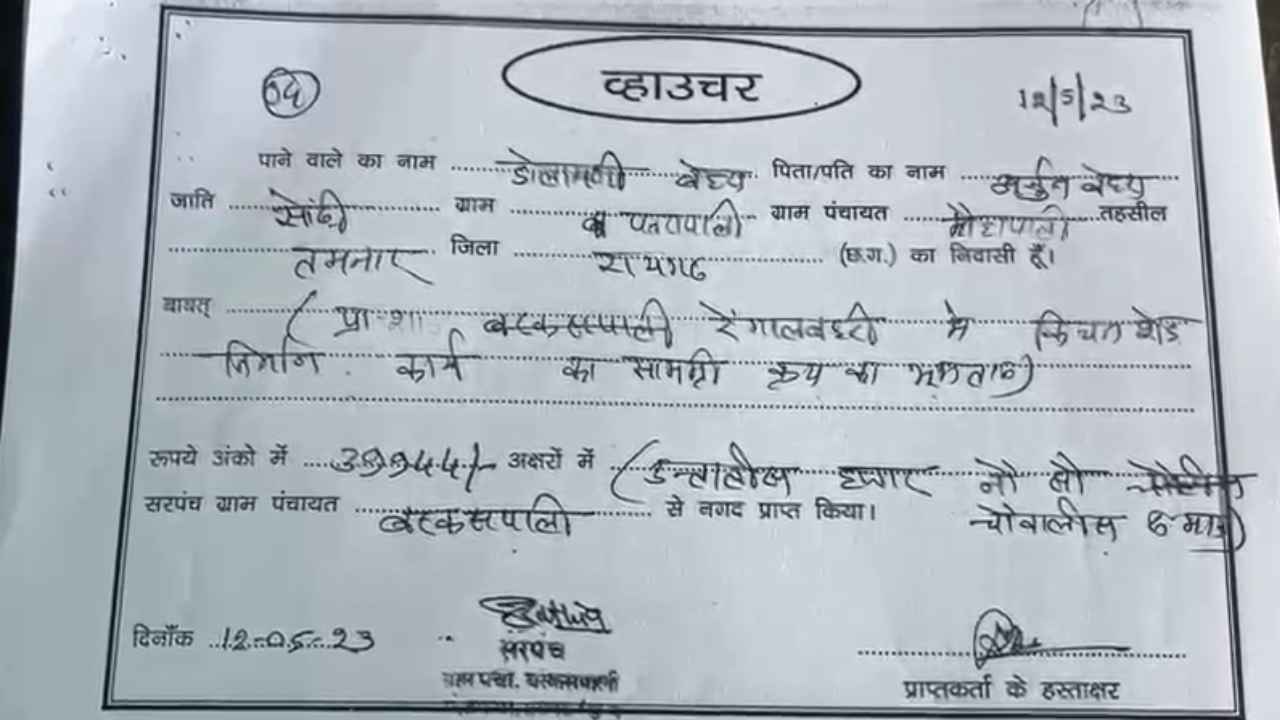 व्हाउचर
04
12/5/23
पाने वाले का नाम ..... डोलामणी वेद्य पिता/पति का नाम ..... अर्जुन वेद्य
जाति ..... ग्राम ..... पतरापाली ग्राम पंचायत ..... मौहापाली तहसील
..... तमनार जिला ..... रायगढ ..... (छ.ग.) का निवासी हूँ।
बाबत् ..... ( प्रा-शा बरकसपाली रेंगालबहरी मे किचन शेड
निर्माण कार्य का सामग्री क्रय का भुगतान)
रूपये अंको में ..... 39944/- अक्षरों में ..... (उन्तालीस हजार नौ सौ
सरपंच ग्राम पंचायत ..... बरकसपाली ..... से नगद प्राप्त किया। चोवालीस रु मात्र)
दिनाँक ..12-05-23
सरपंच
ग्राम पंचा. बरकसपाली
प्राप्तकर्ता के हस्ताक्षर